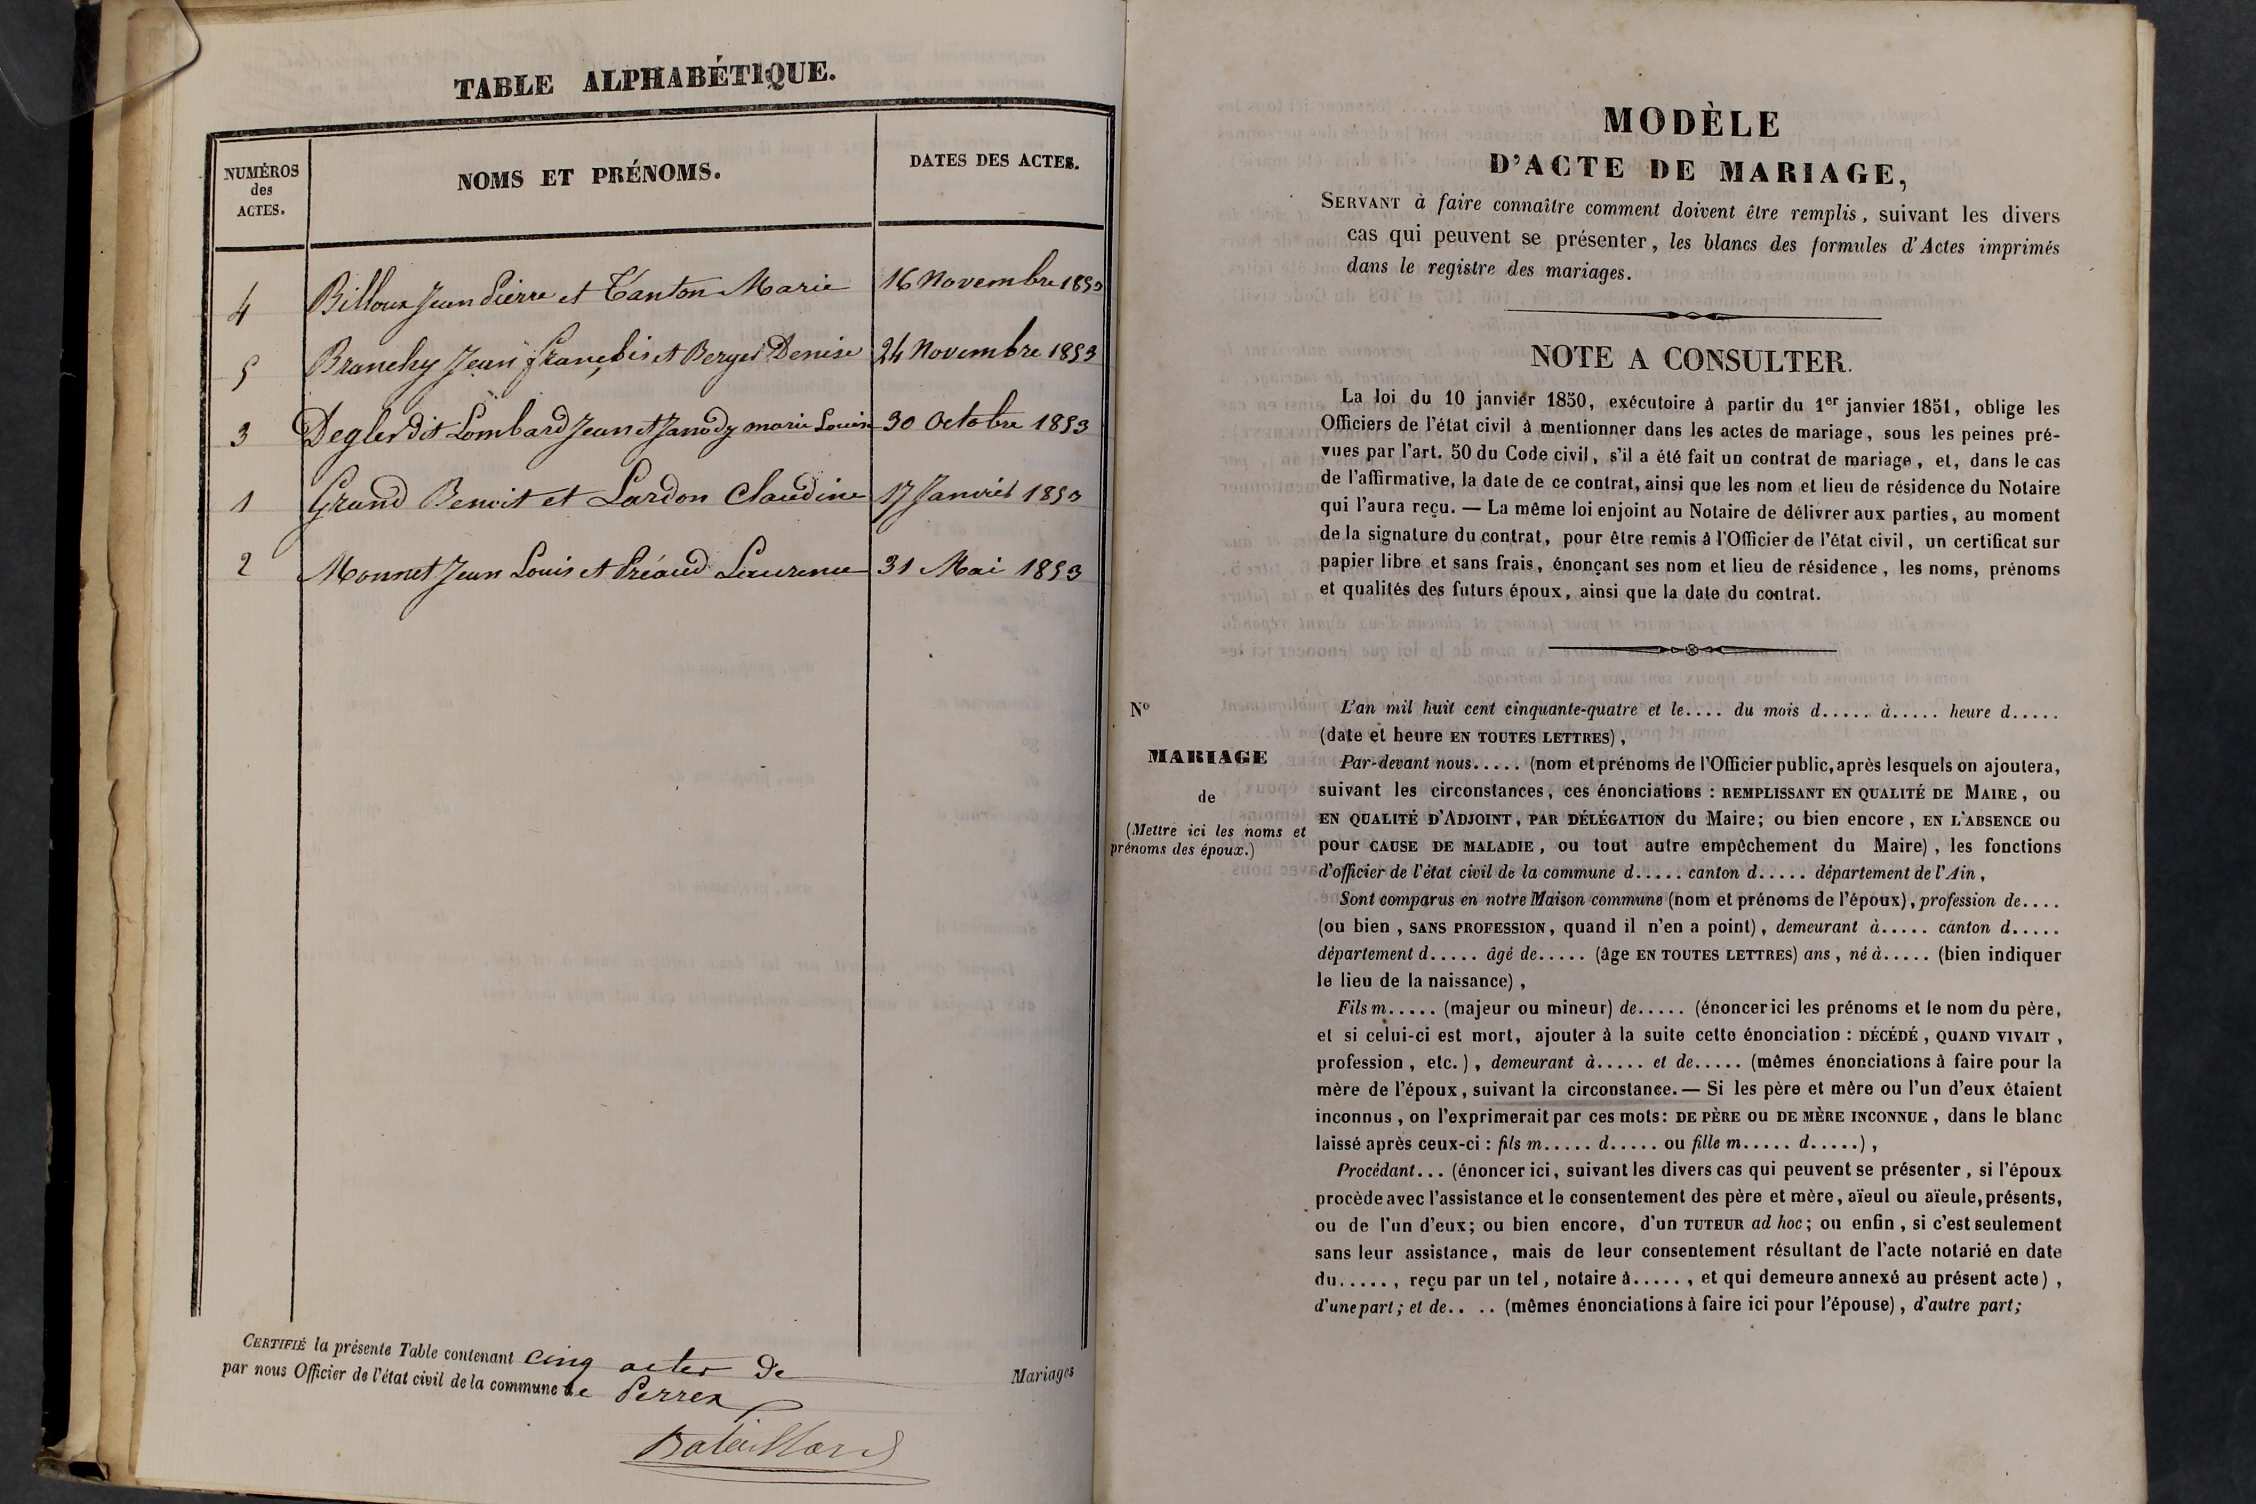 TABLE ALPHABÉTIQUE.
NUMÉROS
des
ACTES.
NOMS ET PRÉNOMS.
DATES DES ACTES.
4 Billoux Jean Pierre et Tanton Marie 16 Novembre 1853
5 Branchy Jean françois et Berger Denise 24 Novembre 1853
3 Degler dit Lombard Jean et Janody marie Louise 30 Octobre 1853
1 Grand Benoit et Lardon Claudine 17 Janvier 1853
2 Monnet Jean Louis et Préaud Laurence 31 Mai 1853
CERTIFIÉ la présente Table contenant cinq actes de Mariages
par nous Officier de l'état civil de la commune de Perrex
Bataillard
MODÈLE
D'ACTE DE MARIAGE,
SERVANT à faire connaître comment doivent être remplis, suivant les divers
cas qui peuvent se présenter, les blancs des formules d'Actes imprimés
dans le registre des mariages.
NOTE A CONSULTER.
La loi du 10 janvier 1850, exécutoire à partir du 1er janvier 1851, oblige les
Officiers de l'état civil à mentionner dans les actes de mariage, sous les peines pré-
vues par l'art. 50 du Code civil, s'il a été fait un contrat de mariage, et, dans le cas
de l'affirmative, la date de ce contrat, ainsi que les nom et lieu de résidence du Notaire
qui l'aura reçu. — La même loi enjoint au Notaire de délivrer aux parties, au moment
de la signature du contrat, pour être remis à l'Officier de l'état civil, un certificat sur
papier libre et sans frais, énonçant ses nom et lieu de résidence, les noms, prénoms
et qualités des futurs époux, ainsi que la date du contrat.
No
MARIAGE
de
(Mettre ici les noms et
prénoms des époux.)
L'an mil huit cent cinquante-quatre et le.... du mois d..... à..... heure d.....
(date et heure EN TOUTES LETTRES),
Par-devant nous..... (nom et prénoms de l'Officier public, après lesquels on ajoutera,
suivant les circonstances, ces énonciations : REMPLISSANT EN QUALITÉ DE MAIRE, ou
EN QUALITÉ D'ADJOINT, PAR DÉLÉGATION du Maire; ou bien encore, EN L'ABSENCE ou
pour CAUSE DE MALADIE, ou tout autre empêchement du Maire), les fonctions
d'officier de l'état civil de la commune d..... canton d..... département de l'Ain,
Sont comparus en notre Maison commune (nom et prénoms de l'époux), profession de....
(ou bien, SANS PROFESSION, quand il n'en a point), demeurant à..... canton d.....
département d..... âgé de..... (âge EN TOUTES LETTRES) ans, né à..... (bien indiquer
le lieu de la naissance),
Fils m..... (majeur ou mineur) de..... (énoncer ici les prénoms et le nom du père,
et si celui-ci est mort, ajouter à la suite cette énonciation : DÉCÉDÉ, QUAND VIVAIT,
profession, etc.), demeurant à..... et de..... (mêmes énonciations à faire pour la
mère de l'époux, suivant la circonstance. — Si les père et mère ou l'un d'eux étaient
inconnus, on l'exprimerait par ces mots: DE PÈRE ou DE MÈRE INCONNUE, dans le blanc
laissé après ceux-ci : fils m..... d..... ou fille m..... d.....),
Procédant... (énoncer ici, suivant les divers cas qui peuvent se présenter, si l'époux
procède avec l'assistance et le consentement des père et mère, aïeul ou aïeule, présents,
ou de l'un d'eux; ou bien encore, d'un TUTEUR ad hoc; ou enfin, si c'est seulement
sans leur assistance, mais de leur consentement résultant de l'acte notarié en date
du....., reçu par un tel, notaire à....., et qui demeure annexé au présent acte),
d'une part; et de.. .. (mêmes énonciations à faire ici pour l'épouse), d'autre part;